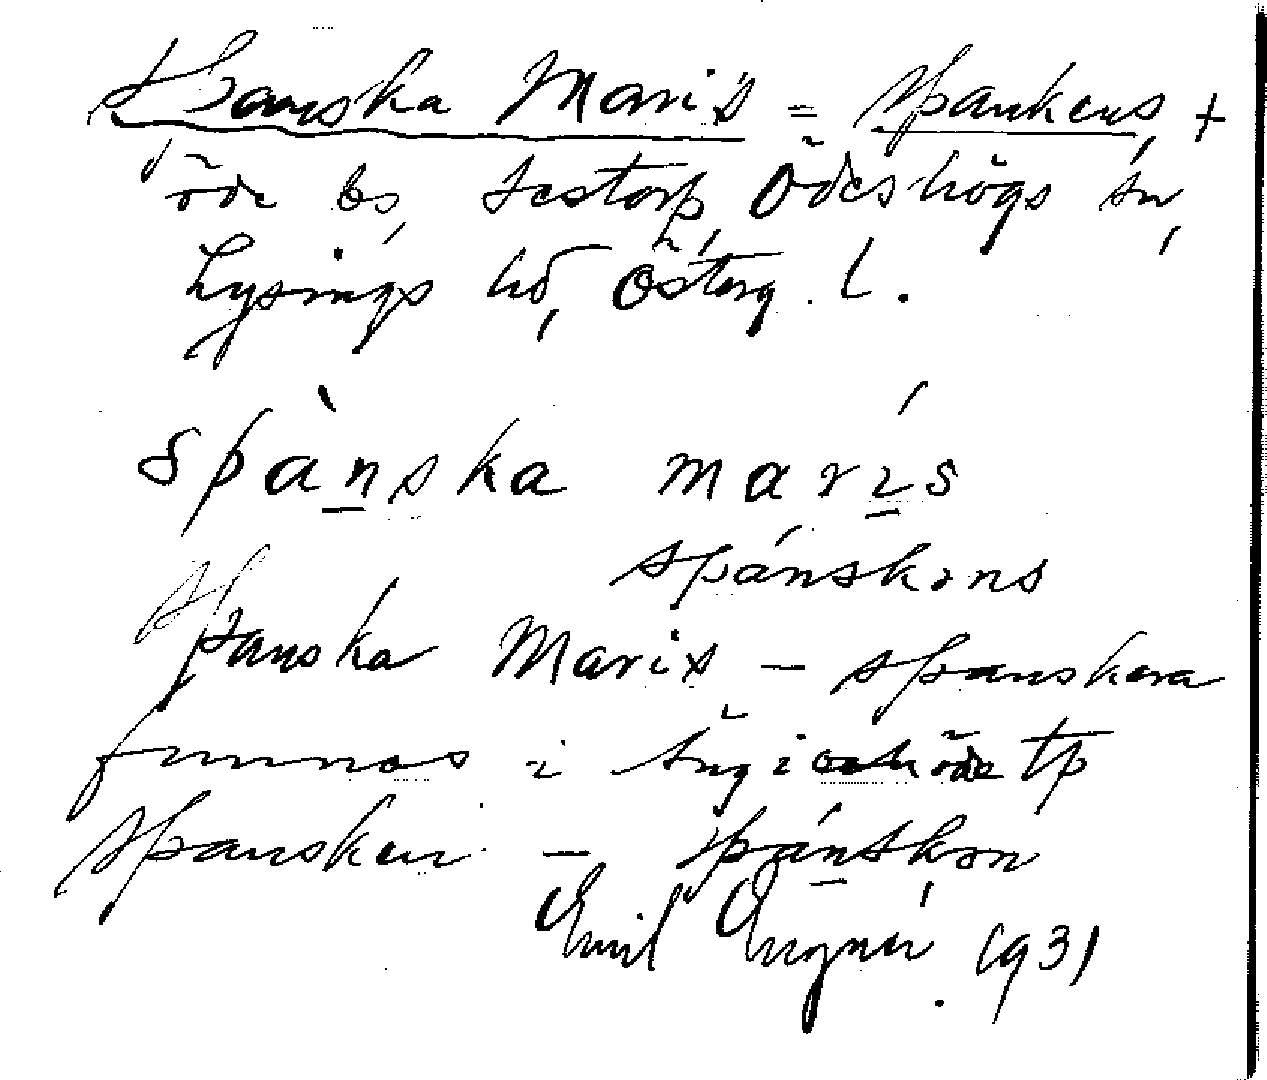 Spanska Maris = Spankens, +
öde bs, Sestorp, Ödeshögs sn,
Lysings hd, Österg. l.
spànska marís
spánskəns
Spanska Maris - Spanskens
funnos i
Spansken - spánskən
Emil Engnér 1931